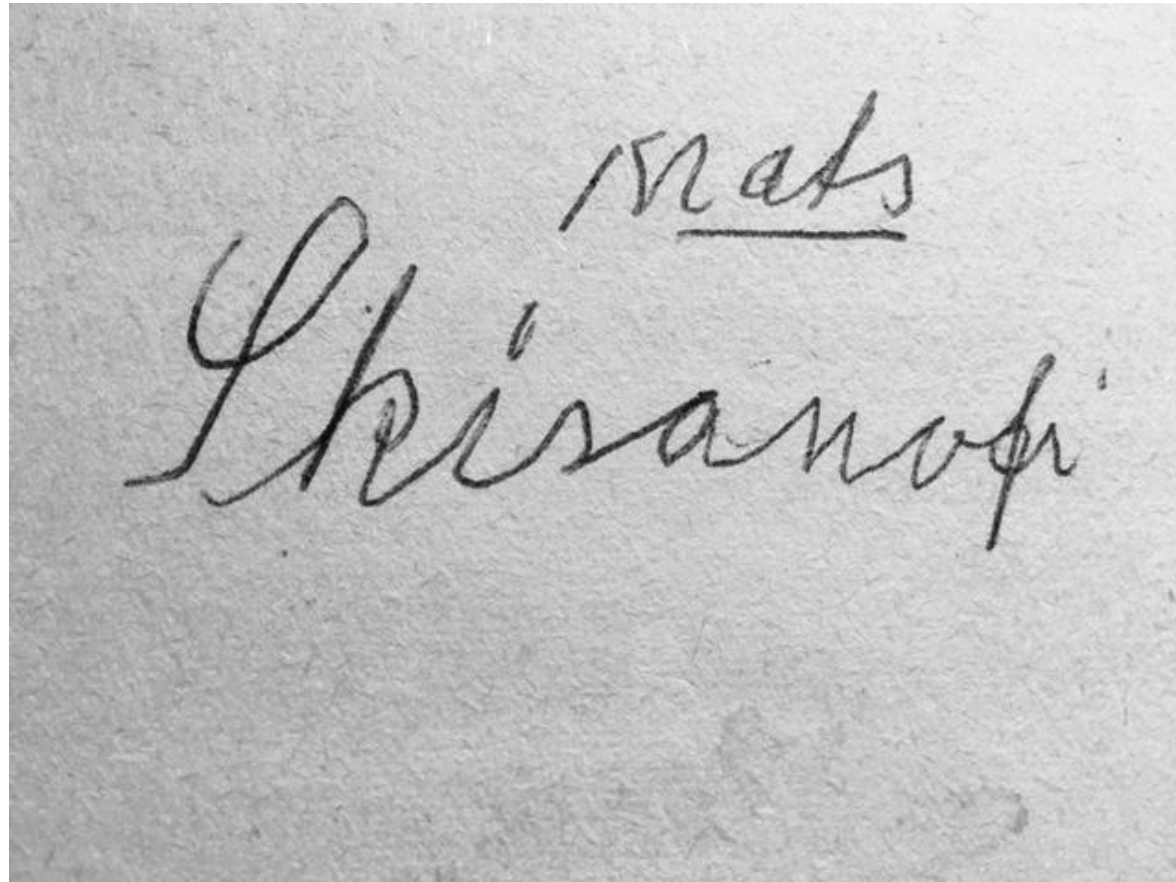 mats
Skisanofi